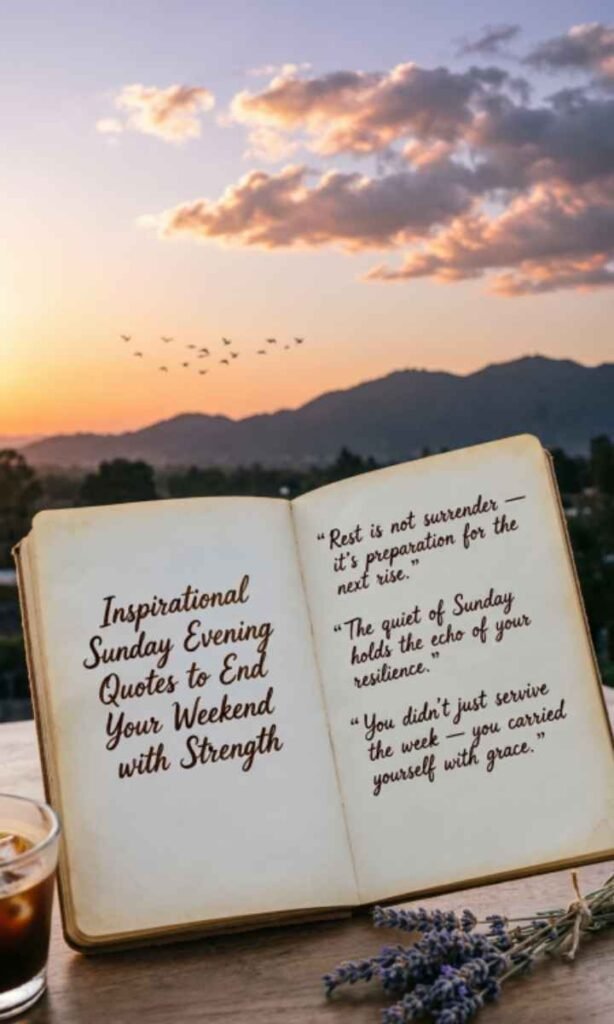 Inspirational
Sunday Evening
Quotes to End
Your Weekend
with Strength
“Rest is not surrender —
it’s preparation for the
next rise.”
“The quiet of Sunday
holds the echo of your
resilience.”
“You didn’t just servive
the week — you carried
yourself with grace.”